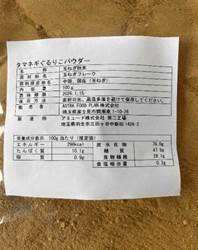 タマネギぐるりこパウダー
名　称　玉ねぎ粉末
原材料名　玉ねぎフレーク
原料原産地　中国、国産（玉ねぎ）
内容量　100g
賞味期限　2026.1.15
保存方法　直射日光、高温多湿を避けて保存してください。
販売者　ASTRA FOOD PLAN 株式会社
埼玉県富士見市
製造所　アミュード株式会社 第二工場
埼玉県羽生市
栄養成分表示　100g当たり（推定値）
エネルギー　298kcal　炭水化物　76.0g
たんぱく質　10.1g　糖質　41.9g
脂質　0.9g　食物繊維　28.1g
食塩相当量　0.3g